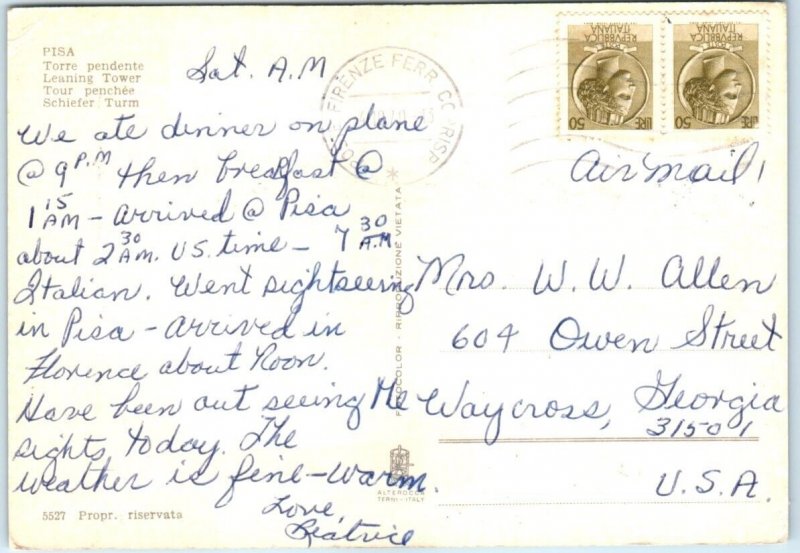 PISA
Torre pendente
Leaning Tower
Tour penchée
Schiefer Turm
Sat. A.M
We ate dinner on plane
@ 9 P.M then breakfast @
1 15 AM - arrived @ Pisa
about 2 30 AM. U.S. time - 7 30 A.M
Italian. Went sightseeing
in Pisa - arrived in
Florence about Noon.
Have been out seeing the
sights today. The
weather is fine - warm.
Love,
Beatrice
5527 Propr. riservata
RIPRODUZIONE VIETATA
ALTEROCCA
TERNI - ITALY
FIRENZE FERR. CORRISP
REPVBBLICA
ITALIANA
POSTE
LIRE 50
REPVBBLICA
ITALIANA
POSTE
LIRE 50
Air mail!
Mrs. W. W. Allen
604 Owen Street
Waycross, Georgia
31501
U.S.A.